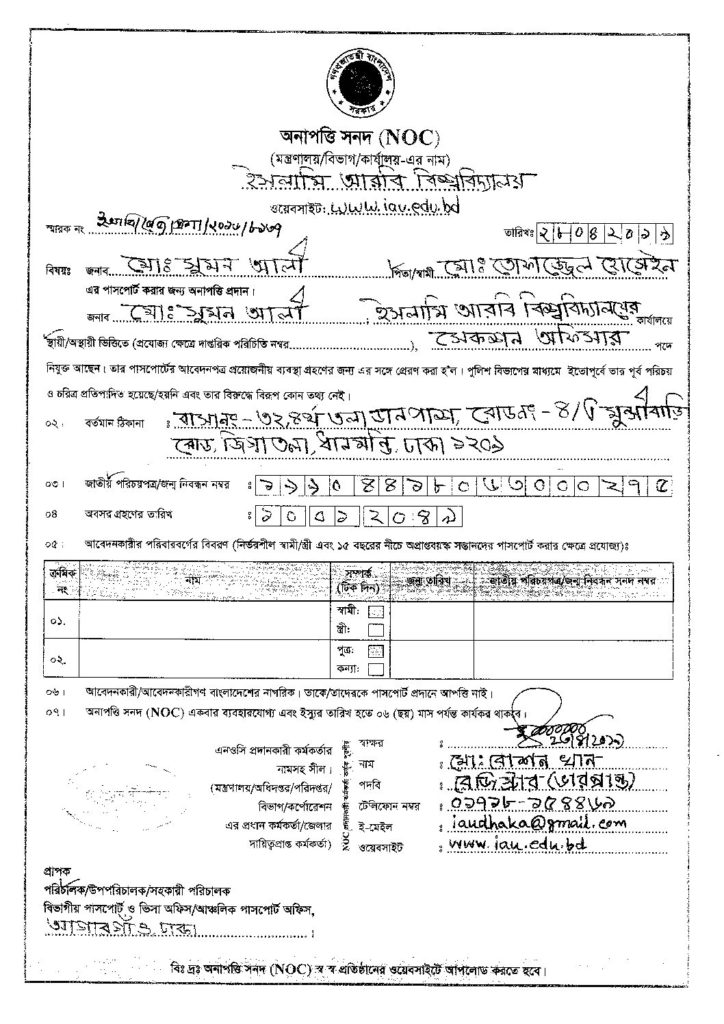 গণপ্রজাতন্ত্রী বাংলাদেশ
সরকার
অনাপত্তি সনদ (NOC)
(মন্ত্রণালয়/বিভাগ/কার্যালয়-এর নাম)
ইসলামি আরবি বিশ্ববিদ্যালয়
ওয়েবসাইট: www.iau.edu.bd
স্মারক নং তারিখঃ ২৮০৪২০১৯
বিষয়ঃ জনাব মোঃ সুমন আলী পিতা/স্বামী মোঃ তোফাজ্জেল হোসেইন
এর পাসপোর্ট করার জন্য অনাপত্তি প্রদান।
জনাব মোঃ সুমন আলী, ইসলামি আরবি বিশ্ববিদ্যালয়ের কার্যালয়ে
স্থায়ী/অস্থায়ী ভিত্তিতে (প্রযোজ্য ক্ষেত্রে দাপ্তরিক পরিচিতি নম্বর), সেকশন অফিসার পদে
নিযুক্ত আছেন। তার পাসপোর্টের আবেদনপত্র প্রয়োজনীয় ব্যবস্থা গ্রহণের জন্য এর সঙ্গে প্রেরণ করা হ'ল। পুলিশ বিভাগের মাধ্যমে ইতোপূর্বে তার পূর্ব পরিচয়
ও চরিত্র প্রতিপাদিত হয়েছে/হয়নি এবং তার বিরুদ্ধে বিরূপ কোন তথ্য নেই।
০২। বর্তমান ঠিকানা : বাসা নং - ৩২, ৪র্থ তলা ডান পাশ, রোড নং - ৪/ মুন্সীবাড়ি
রোড, জিগাতলা, ধানমন্ডি, ঢাকা ১২০৯
০৩। জাতীয় পরিচয়পত্র/জন্ম নিবন্ধন নম্বর :
০৪ অবসর গ্রহণের তারিখ :
০৫। আবেদনকারীর পরিবারবর্গের বিবরণ (নির্ভরশীল স্বামী/স্ত্রী এবং ১৫ বছরের নীচে অপ্রাপ্তবয়স্ক সন্তানদের পাসপোর্ট করার ক্ষেত্রে প্রযোজ্য)ঃ
ক্রমিক নং নাম সম্পর্ক (টিক দিন) জন্ম তারিখ জাতীয় পরিচয়পত্র/জন্ম নিবন্ধন সনদ নম্বর
০১. স্বামী:
স্ত্রী:
০২. পুত্র:
কন্যা:
০৬। আবেদনকারী/আবেদনকারীগণ বাংলাদেশের নাগরিক। তাকে/তাদেরকে পাসপোর্ট প্রদানে আপত্তি নাই।
০৭। অনাপত্তি সনদ (NOC) একবার ব্যবহারযোগ্য এবং ইস্যুর তারিখ হতে ০৬ (ছয়) মাস পর্যন্ত কার্যকর থাকবে।
এনওসি প্রদানকারী কর্মকর্তার স্বাক্ষর :
নামসহ সীল। নাম : মোঃ রোশন খান
(মন্ত্রণালয়/অধিদপ্তর/পরিদপ্তর/ পদবি : রেজিস্ট্রার (ভারপ্রাপ্ত)
বিভাগ/কর্পোরেশন টেলিফোন নম্বর :
এর প্রধান কর্মকর্তা/জেলার ই-মেইল : iaudhaka@gmail.com
দায়িত্বপ্রাপ্ত কর্মকর্তা) ওয়েবসাইট : www.iau.edu.bd
প্রাপক
পরিচালক/উপপরিচালক/সহকারী পরিচালক
বিভাগীয় পাসপোর্ট ও ভিসা অফিস/আঞ্চলিক পাসপোর্ট অফিস,
আগারগাঁও ঢাকা।
বিঃ দ্রঃ অনাপত্তি সনদ (NOC) স্ব স্ব প্রতিষ্ঠানের ওয়েবসাইটে আপলোড করতে হবে।